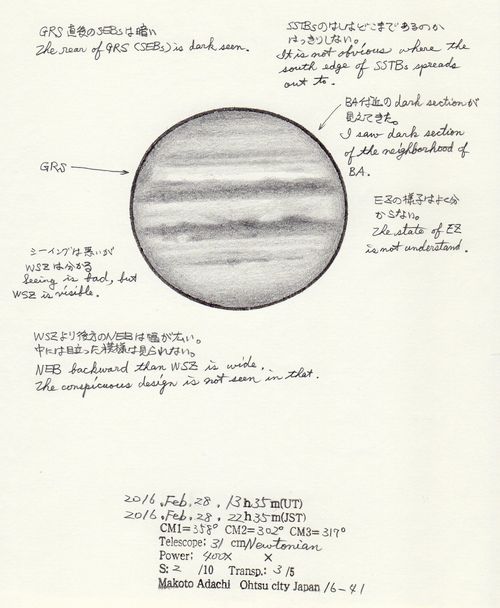 GRS 直後のSEBsは暗い
The rear of GRS (SEBs) is dark seen.
SSTBsのはしはどこまであるのか
はっきりしない。
It is not obvious where the
south edge of SSTBs spreads
out to.
BA付近のdark sectionが
見えてきた。
I saw dark section
of the neighborhood of
BA.
GRS
EZの様子はよく分
からない。
The state of EZ
is not understand.
シーイングは悪いが
WSZは分かる
Seeing is bad, but
WSZ is visible.
WSZより後方のNEBは幅が広い。
中には目立った模様は見られない。
NEB backward than WSZ is wide.
The conspicuous design is not seen in that.
2016.Feb.28, 13h35m(UT)
2016.Feb.28, 22h35m(JST)
CM1=358° CM2=302° CM3=317°
Telescope: 31 cm Newtonian
Power: 400X X
S: 2 /10 Transp.: 3 /5
Makoto Adachi Ohtsu city Japan 16-41